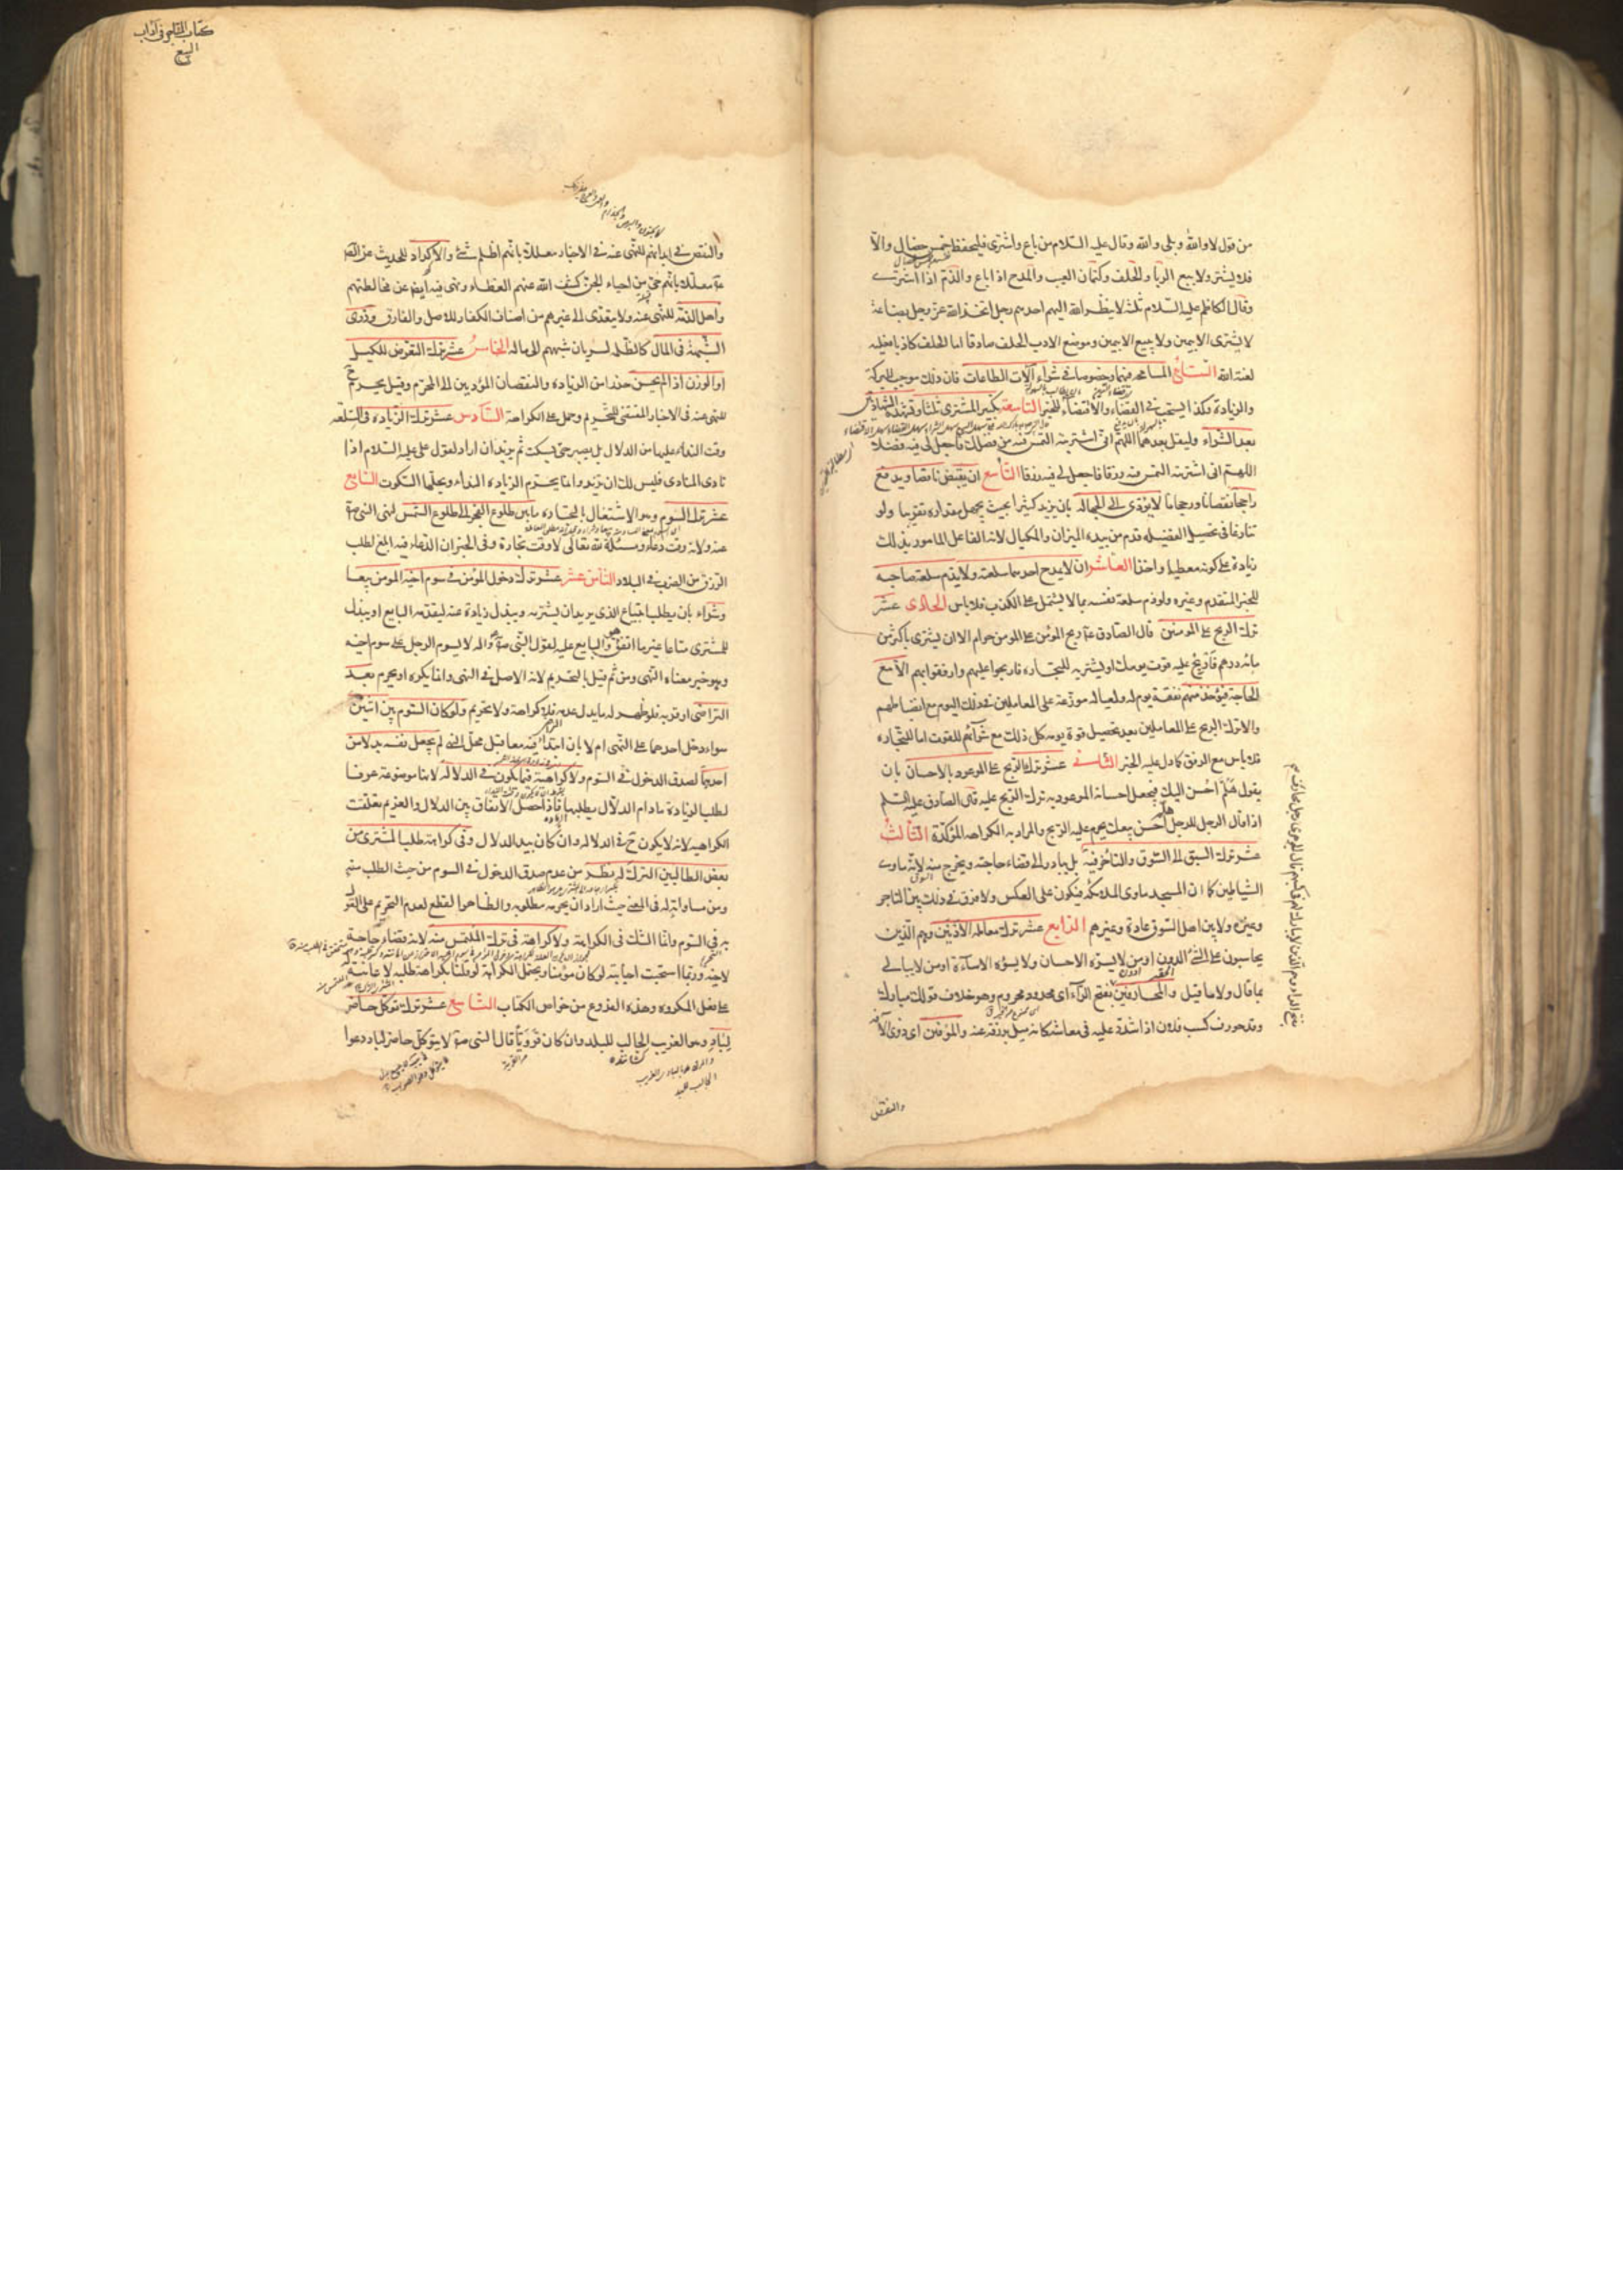 من قول لا والله وبلى والله وقال عليه السلام من باع واشترى فليحفظ خمس خصال والا
فلا يشتر ولا يبيع الربا والحلف وكتمان العيب والمدح اذا باع والذم اذا اشترى
وقال الكاظم عليه السلام ثلثة لا ينظر الله اليهم احدهم رجل اتخذ الله عز وجل بضاعة
لا يشترى الا بيمين ولا يبيع الا بيمين وموضع الادب الحلف صادقا اما الحلف كاذبا فعليه
لعنة الله المسامحة فيهما وخصوصا فى شراء آلات الطاعات فان ذلك موجب للبركة
والزيادة وكذا يستحب فى القضاء والاقتضاء للخبر تكبير المشترى ثلثا وتشهده الشهادتين
بعد الشراء وليقل بعدهما اللهم انى اشتريته التمس فيه من فضلك فاجعل لى فيه فضلا
اللهم انى اشتريته التمس فيه رزقا فاجعل لى فيه رزقا التاسع ان يقبض ناقصا ويدفع
راجحا نقصانا ورجحانا لا يؤدى الى الجهالة بان يزيد كثيرا بحيث يجهل مقداره تقريبا ولو
تنازعا فى تحصيل الفضيلة قدم من بيده الميزان والمكيال لانه الفاعل المامور بذلك
زيادة على كونه معطيا واخذا العاشر ان لا يمدح احدهما سلعته ولا يذم سلعة صاحبه
للخبر المتقدم وغيره ولو ذم سلعة نفسه بما لا يشتمل على الكذب فلا باس الحادى عشر
ترك الربح على المومنين قال الصادق ع ربح المؤمن على المومن حرام الا ان يشترى باكثر من
مائة درهم فاربح عليه قوت يومك او يشتريه للتجارة فاربحوا عليهم وارفقوا بهم الا مع
الحاجة فيؤخذ منهم نفقة يوم له ولعياله موزعة على المعاملين فى ذلك اليوم مع انضباطهم
والا ترك الربح على المعاملين بعد تحصيل قوة يومه كل ذلك مع شرائهم للقوت اما للتجارة
فلا باس مع الرفق كما دل عليه الخبر الثانى عشر ترك الربح على الموعود بالاحسان بان
يقول هلم احسن اليك فيجعل احسانه الموعود به ترك الربح عليه قال الصادق عليه السلم
اذا قال الرجل للرجل هلم احسن بيعك يحرم عليه الربح والمراد به الكراهه المؤكدة الثالث
عشر ترك السبق الى السوق والتاخر فيه بل يبادر الى قضاء حاجته ويخرج منه لانه ماوى
الشياطين كما ان المسجد ماوى الملائكة فيكون على العكس ولا فرق فى ذلك بين التاجر
وغيره ولا بين اهل السوق عادة وغيرهم الرابع عشر ترك معاملة الادنين وهم الذين
يحاسبون على الشئ الدون او من لا يسره الاحسان ولا يسؤه الاساءة او من لا يبالى
بما قال ولا ما قيل والمحارفين بفتح الراء اى محدود محروم وهو خلاف قولك مبارك
وقد حورف كسب فلان اذا شدد عليه فى معاشه كانه ميل برزقه عنه والمؤفين اى ذوى الآفة
والنقص
كتاب المتاجر فى آداب
البيع
والنقص فى ابدانهم للنهى عنه فى الاخبار معللا بانهم اظلم شئ والاكراد للحديث عن الص
معللا بانهم حى من احياء الجن كشف الله عنهم الغطاء ونهى فيه ايضا عن مخالطتهم
واهل الذمة للنهى عنه ولا يتعدى الى غيرهم من اصناف الكفار للاصل والفارق وذوى
الشبهة فى المال كالظلمة لسريان شبههم الى ماله الخامس عشر ترك التعرض للكيل
او الوزن اذا لم يحسن حذرا من الزيادة والنقصان المؤديين الى المحرم وقيل يحرم ح
للنهى عنه فى الاخبار المقتضى للتحريم وحمل على الكراهة السادس عشر ترك الزيادة فى السلعة
وقت النداء عليها من الدلال بل يصبر حتى يسكت ثم يزيد ان اراد لقول على عليه السلام اذا
نادى المنادى فليس لك ان تزيد وانما يحرم الزيادة النداء ويحلها السكوت السابع
عشر ترك السوم وهو الاشتغال بالتجارة ما بين طلوع الفجر الى طلوع الشمس لنهى النبى ص
عنه ولانه وقت دعاء ومسئلة لله تعالى لا وقت تجارة وفى الخبر ان الدعاء فيه ابلغ لطلب
الرزق من الضرب فى البلاد الثامن عشر ترك دخول المؤمن فى سوم اخيه المومن بيعا
وشراء بان يطلب ابتياع الذى يريد ان يشتريه ويبذل زيادة عنه ليقدمه البايع او يبذل
للمشترى متاعا غير ما اتفق هو والبايع عليه لقول النبى ص واله لا يسوم الرجل على سوم اخيه
وهو خبر معناه النهى ومن ثم قيل بالتحريم لانه الاصل فى النهى وانما يكره او يحرم بعد
التراضى او قربه فلو ظهر له ما يدل على عدمه فلا كراهة ولا تحريم ولو كان السوم بين اثنين
سواء دخل احدهما على النهى ام لا بان ابتداء فيه معا قبل محل النهى لم يجعل نفسه بدلا من
احدهما لصدق الدخول فى السوم ولا كراهة فيما يكون فى الدلالة لانها موضوعة عرفا
لطلب الزيادة ما دام الدلال يطلبها فاذا حصل الاتفاق بين الدلال والغريم تعلقت
الكراهية لانه لا يكون ح فى الدلالة وان كان بيد الدلال وفى كراهة طلب المشترى من
بعض الطالبين الترك له نظر من عدم صدق الدخول فى السوم من حيث الطلب منه
ومن مساواته له فى المعنى حيث اراد ان يحرمه مطلوبه والظاهر القطع لعدم التحريم على القول
به فى السوم وانما الشك فى الكراهة ولا كراهة فى ترك الملتمس منه لانه قضاء حاجة
لاخيه وربما استحبت اجابته لو كان مؤمنا ويحتمل الكراهة لو قلنا بكراهة طلبه لاعانته له
على فعل المكروه وهذه الفروع من خواص الكتاب التاسع عشر ترك توكل حاضر
لباد وهو الغريب الجالب للبلد وان كان قرويا قال النبى ص لا يتوكل حاضر لباد دعوا